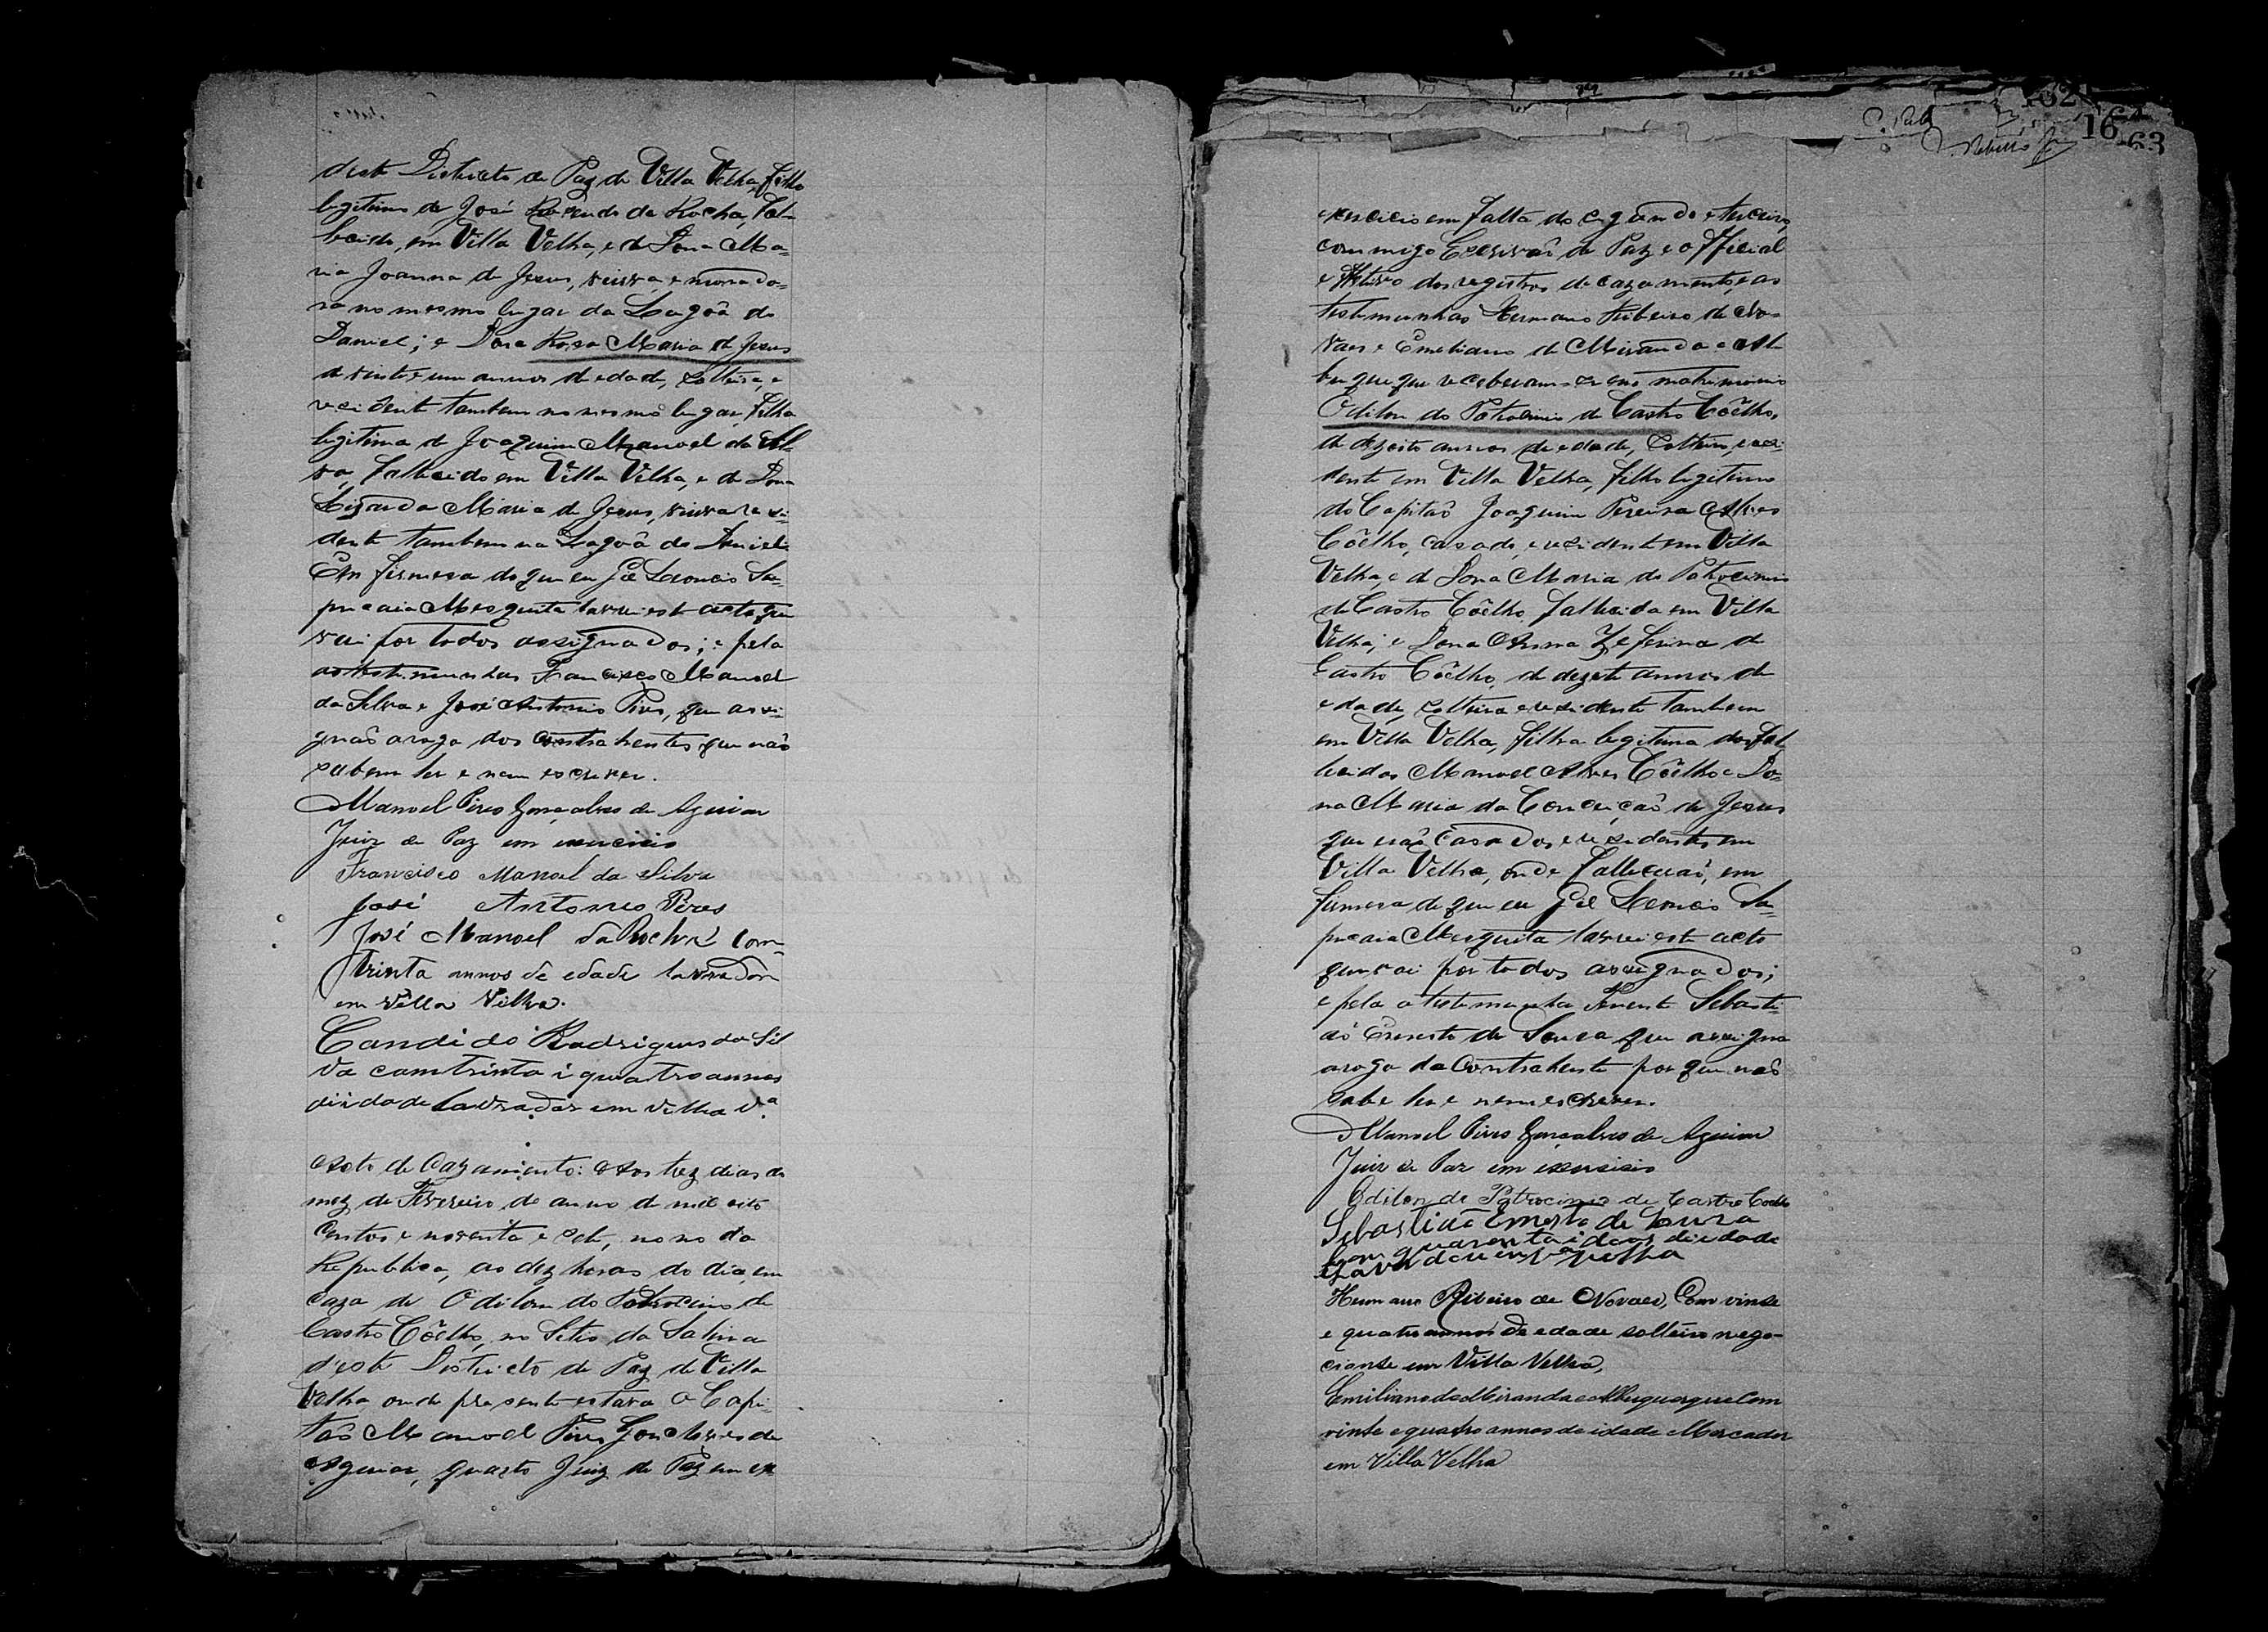 deste Districto de Paz de Villa Velha, filho
legitimo de José Rosendo da Rocha, fal-
lecido, em Villa Velha, e de Dona Ma-
ria Joanna de Jesus, viuva, e morado-
ra no mesmo lugar da Lagôa do
Daniel; e Dona Rosa Maria de Jesus
de vinte e um annos de edade, solteira, e
residente tambem no mesmo lugar, filha
legitima de Joaquim Manoel da Sil-
va, fallecido em Villa Velha, e de Dona
Maria de Jesus, viuva resi-
dente tambem na Lagôa do Daniel.
Em firmesa do que eu Gil Leoncio Sa-
pucaia Mesquita lavrei este acto que
vai por todos assignados; e pela
as testemunhas Francisco Manoel
da Silva e José Antonio Pires, que assi-
gnaõ arogo dos contrahentes que naõ
sabem ler e nem escrever.
Manoel Pires Gonçalves de Aguiar
Juiz de Paz em exercicio
Francisco Manoel da Silva
José Antonio Peres
José Manoel da Rocha com
trinta annos de edade lavrador
em Villa Velha.
Candido Rodrigues da Sil
va com trinta i quatro annos
di idade lavrador em Velha Vª
Acto de Cazamento: Aos trez dias do
mez de Fevereiro do anno de mil oito
centos e noventa e sete, nono da
Republica, as dez horas do dia, em
caza de Odilon do Patrocinio de
Castro Côêlho, no Sitio da Salina
d'este Districto de Paz de Villa
Velha onde presente estava o Capi-
taõ Manoel Pires Gonçalves de
Aguiar, quarto Juiz de Paz em ex
162
16
63
exercicio em falta do segundo e terceiro,
commigo Escrivaõ de Paz e official
dos registros de cazamentos, e as
testemunhas Hermano Ribeiro de No-
vaes e Emiliano de Miranda e Al
buquerque receberam-se em matrimonio
Odilon do Patrocinio de Castro Côêlho,
de dezoito annos de edade, solteiro, e resi-
dente em Villa Velha, filho legitimo
do Capitaõ Joaquim Pereira Alves
Côêlho, casado, e residente em Villa
Velha, e de Dona Maria do Patrocinio
de Castro Côêlho, fallecida em Villa
Velha; e Dona Anna Zeferina de
Castro Côêlho, de dezete annos de
edade, solteira e residente tambem
em Villa Velha, filha legitima dos fal
lecidos Manoel Alves Côêlho e Do-
na Maria da Conceiçaõ de Jesus
que eraõ casados e residentes em
Villa Velha, onde falleceraõ, em
firmesa do que eu Gil Leoncio Sa-
pucaia Mesquita lavrei este acto
que vai por todos assignados;
e pela a testemunha Tenente Sebasti-
aõ Ernesto de Sousa que assigna
arogo da Contrahente por que naõ
sabe ler e nem escrever.
Manoel Pires Gonçalves de Aguiar
Juiz de Paz em exersisio
Odilon do Patrocinio de Castro Coelho
Sebastiaõ Ernesto de Souza
com quarenta i doos di edade
Hermano Ribeiro de Novaes, Com vinte
e quatro annos de edade solteiro nego-
ciante em Villa Velha,
Emiliano de Miranda e Albuquerque Com
vinte e quatro annos de idade Mercador
em Villa Velha